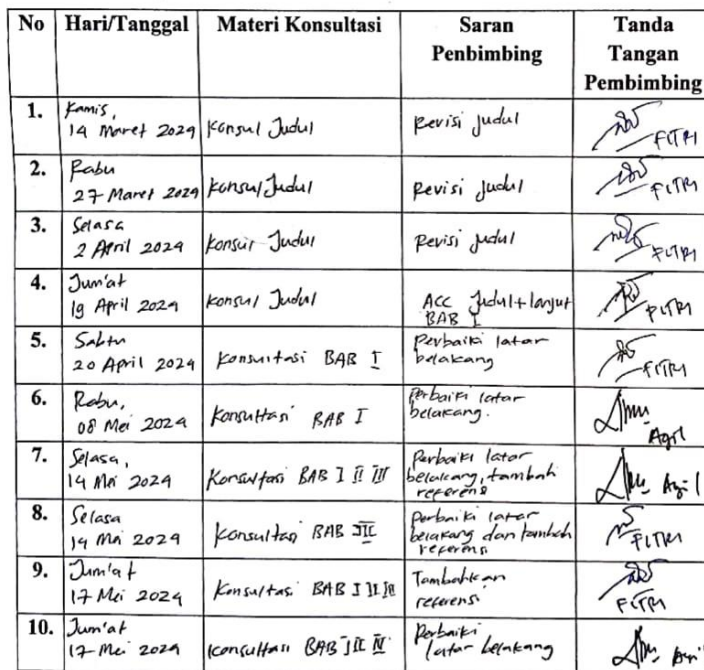 No Hari/Tanggal Materi Konsultasi Saran Penbimbing Tanda Tangan Pembimbing
1. Kamis, 14 Maret 2024 Konsul Judul Revisi Judul FITRI
2. Rabu 27 Maret 2024 Konsul Judul Revisi Judul FITRI
3. Selasa 2 April 2024 Konsul Judul Revisi Judul FITRI
4. Jum'at 19 April 2024 Konsul Judul ACC Judul + lanjut BAB I FITRI
5. Sabtu 20 April 2024 Konsultasi BAB I Perbaiki latar belakang FITRI
6. Rabu, 08 Mei 2024 Konsultasi BAB I Perbaiki latar belakang. Agil
7. Selasa, 14 Mei 2024 Konsultasi BAB I II III Perbaiki latar belakang, tambah referensi Agil
8. Selasa 14 Mei 2024 Konsultasi BAB Perbaiki latar belakang dan tambah referensi FITRI
9. Jum'at 17 Mei 2024 Konsultasi BAB I II III Tambahkan referensi FITRI
10. Jum'at 17 Mei 2024 Konsultasi BAB Perbaiki latar belakang Agil